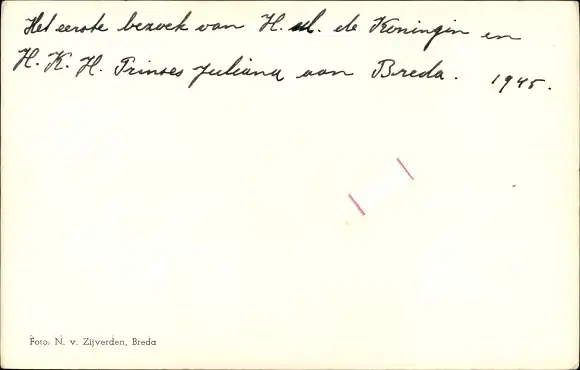 Het eerste bezoek van H. M. de Koningin en
H. K. H. Prinses Juliana aan Breda. 1945.
Foto: N. v. Zijverden, Breda